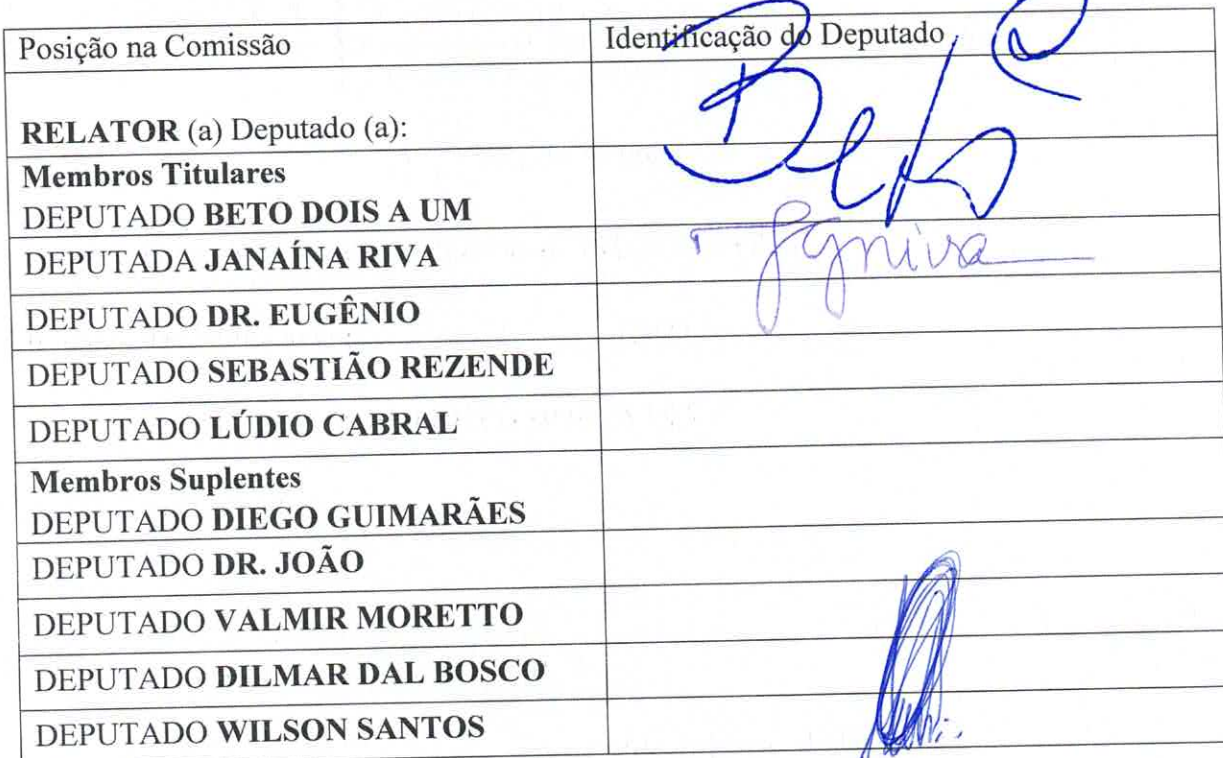 Posição na Comissão
Identificação do Deputado
RELATOR (a) Deputado (a):
Beto
Membros Titulares
DEPUTADO BETO DOIS A UM
DEPUTADA JANAÍNA RIVA
DEPUTADO DR. EUGÊNIO
DEPUTADO SEBASTIÃO REZENDE
DEPUTADO LÚDIO CABRAL
Membros Suplentes
DEPUTADO DIEGO GUIMARÃES
DEPUTADO DR. JOÃO
DEPUTADO VALMIR MORETTO
DEPUTADO DILMAR DAL BOSCO
DEPUTADO WILSON SANTOS